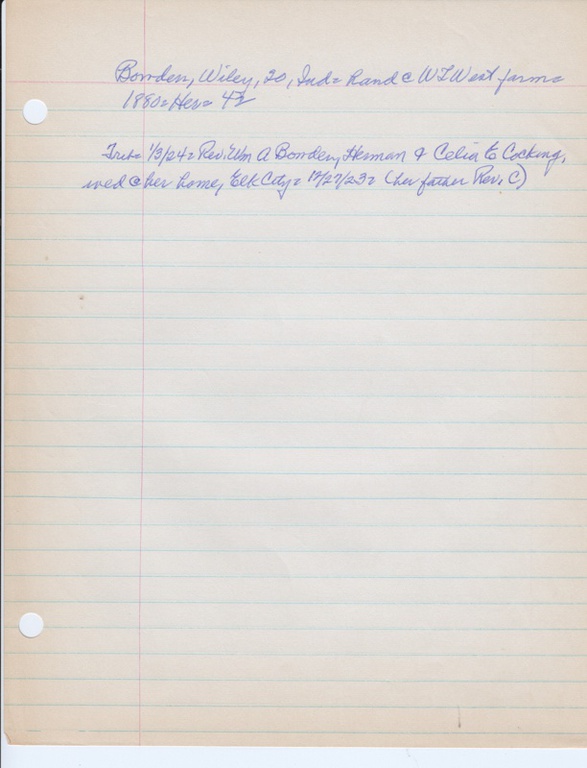 Bowden, Wiley, 20, Ind= hand @ W T West farm=
1880= Her= 42
Trib= 1/3/24= Rev. Wm A Bowden, Herman & Celia E Cocking,
wed @ her home, Elk City= 12/27/23= (her father Rev. C)